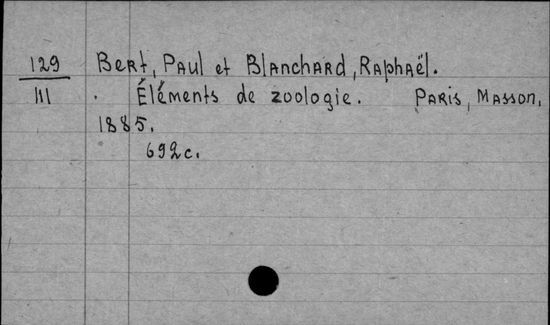 129 Bert, Paul et Blanchard, Raphaël.
III . Éléments de zoologie. Paris, Masson,
1885.
692c.